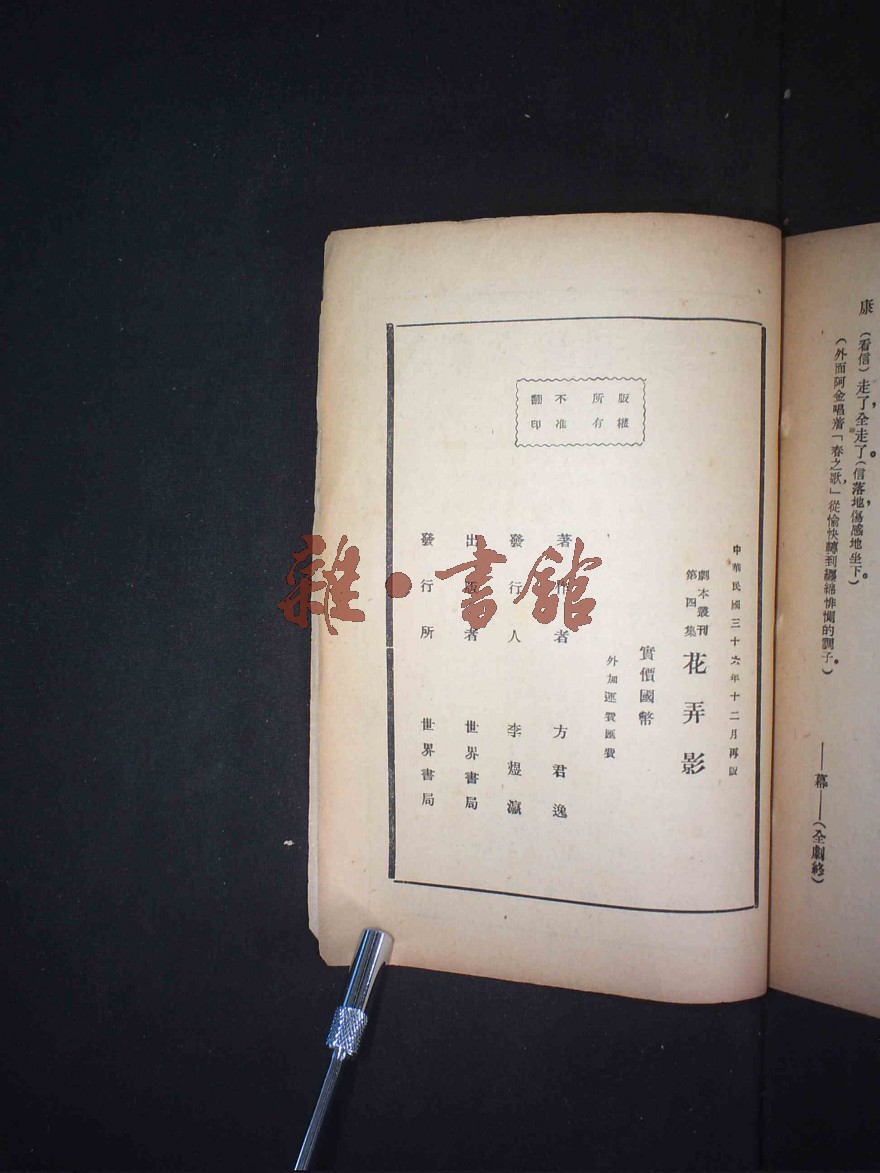 康　(看信)走了，全走了。(信落地，傷感地坐下。)
(外面阿金唱着「春之歌」，從愉快轉到纏綿悱惻的調子。)
——幕——(全劇終)
版權所有
不准翻印
中華民國三十六年十二月再版
劇本叢刊第四集 花弄影
實價國幣
外加運費匯費
著作者 方君逸
發行人 李煜瀛
出版者 世界書局
發行所 世界書局
雜·書館